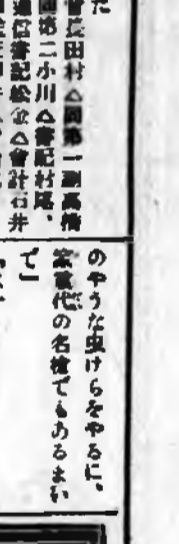 た
會長田村△同第一副高橋
同第二小川△書記村尾、
通信書記松金△會計石井
のやうな虫けらをやるに、
家重代の名槍でもあるまい
て」